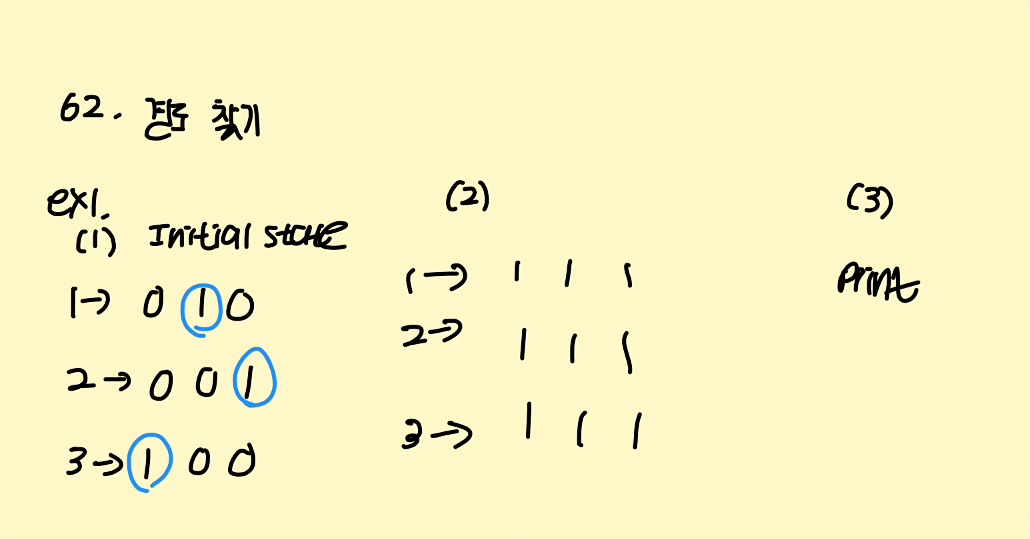 62. 경로 찾기
ex1.
(1) Initial state
1→ 0 1 0
2→ 0 0 1
3→ 1 0 0
(2)
1→ 1 1 1
2→ 1 1 1
3→ 1 1 1
(3)
print